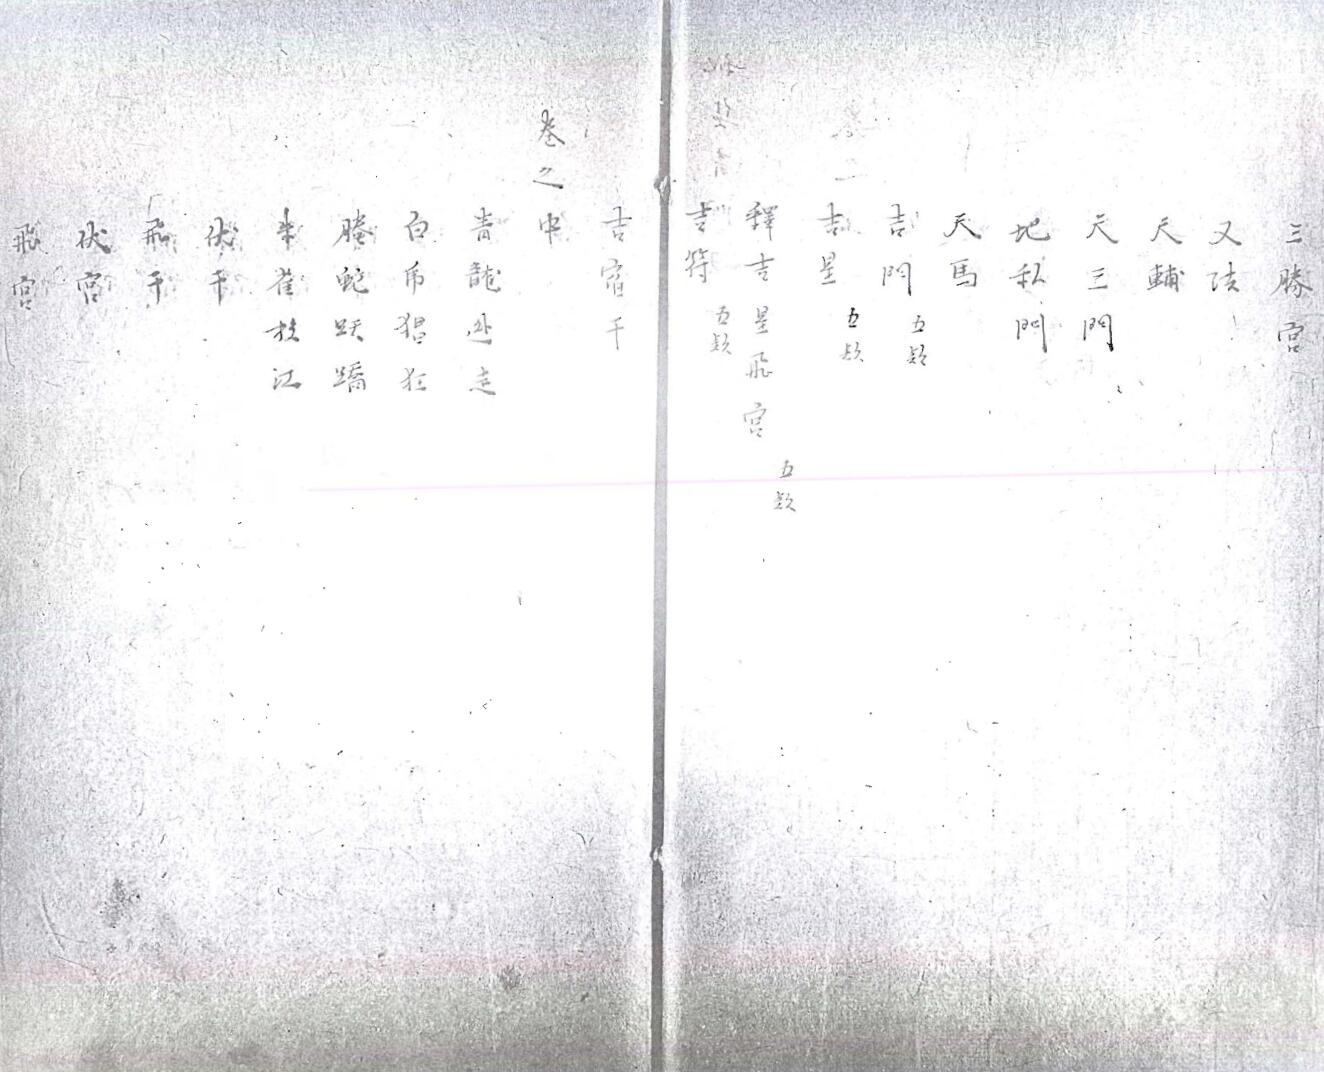 三勝宮
又法
天輔
天三門
地私門
天馬
吉門 五款
吉星 五款
釋吉星飛宮 五款
吉符 五款
吉宿干
卷之中
青龍迯走
白虎猖狂
螣蛇跃蹻
朱雀投江
伏干
飛干
伏宮
飛宮